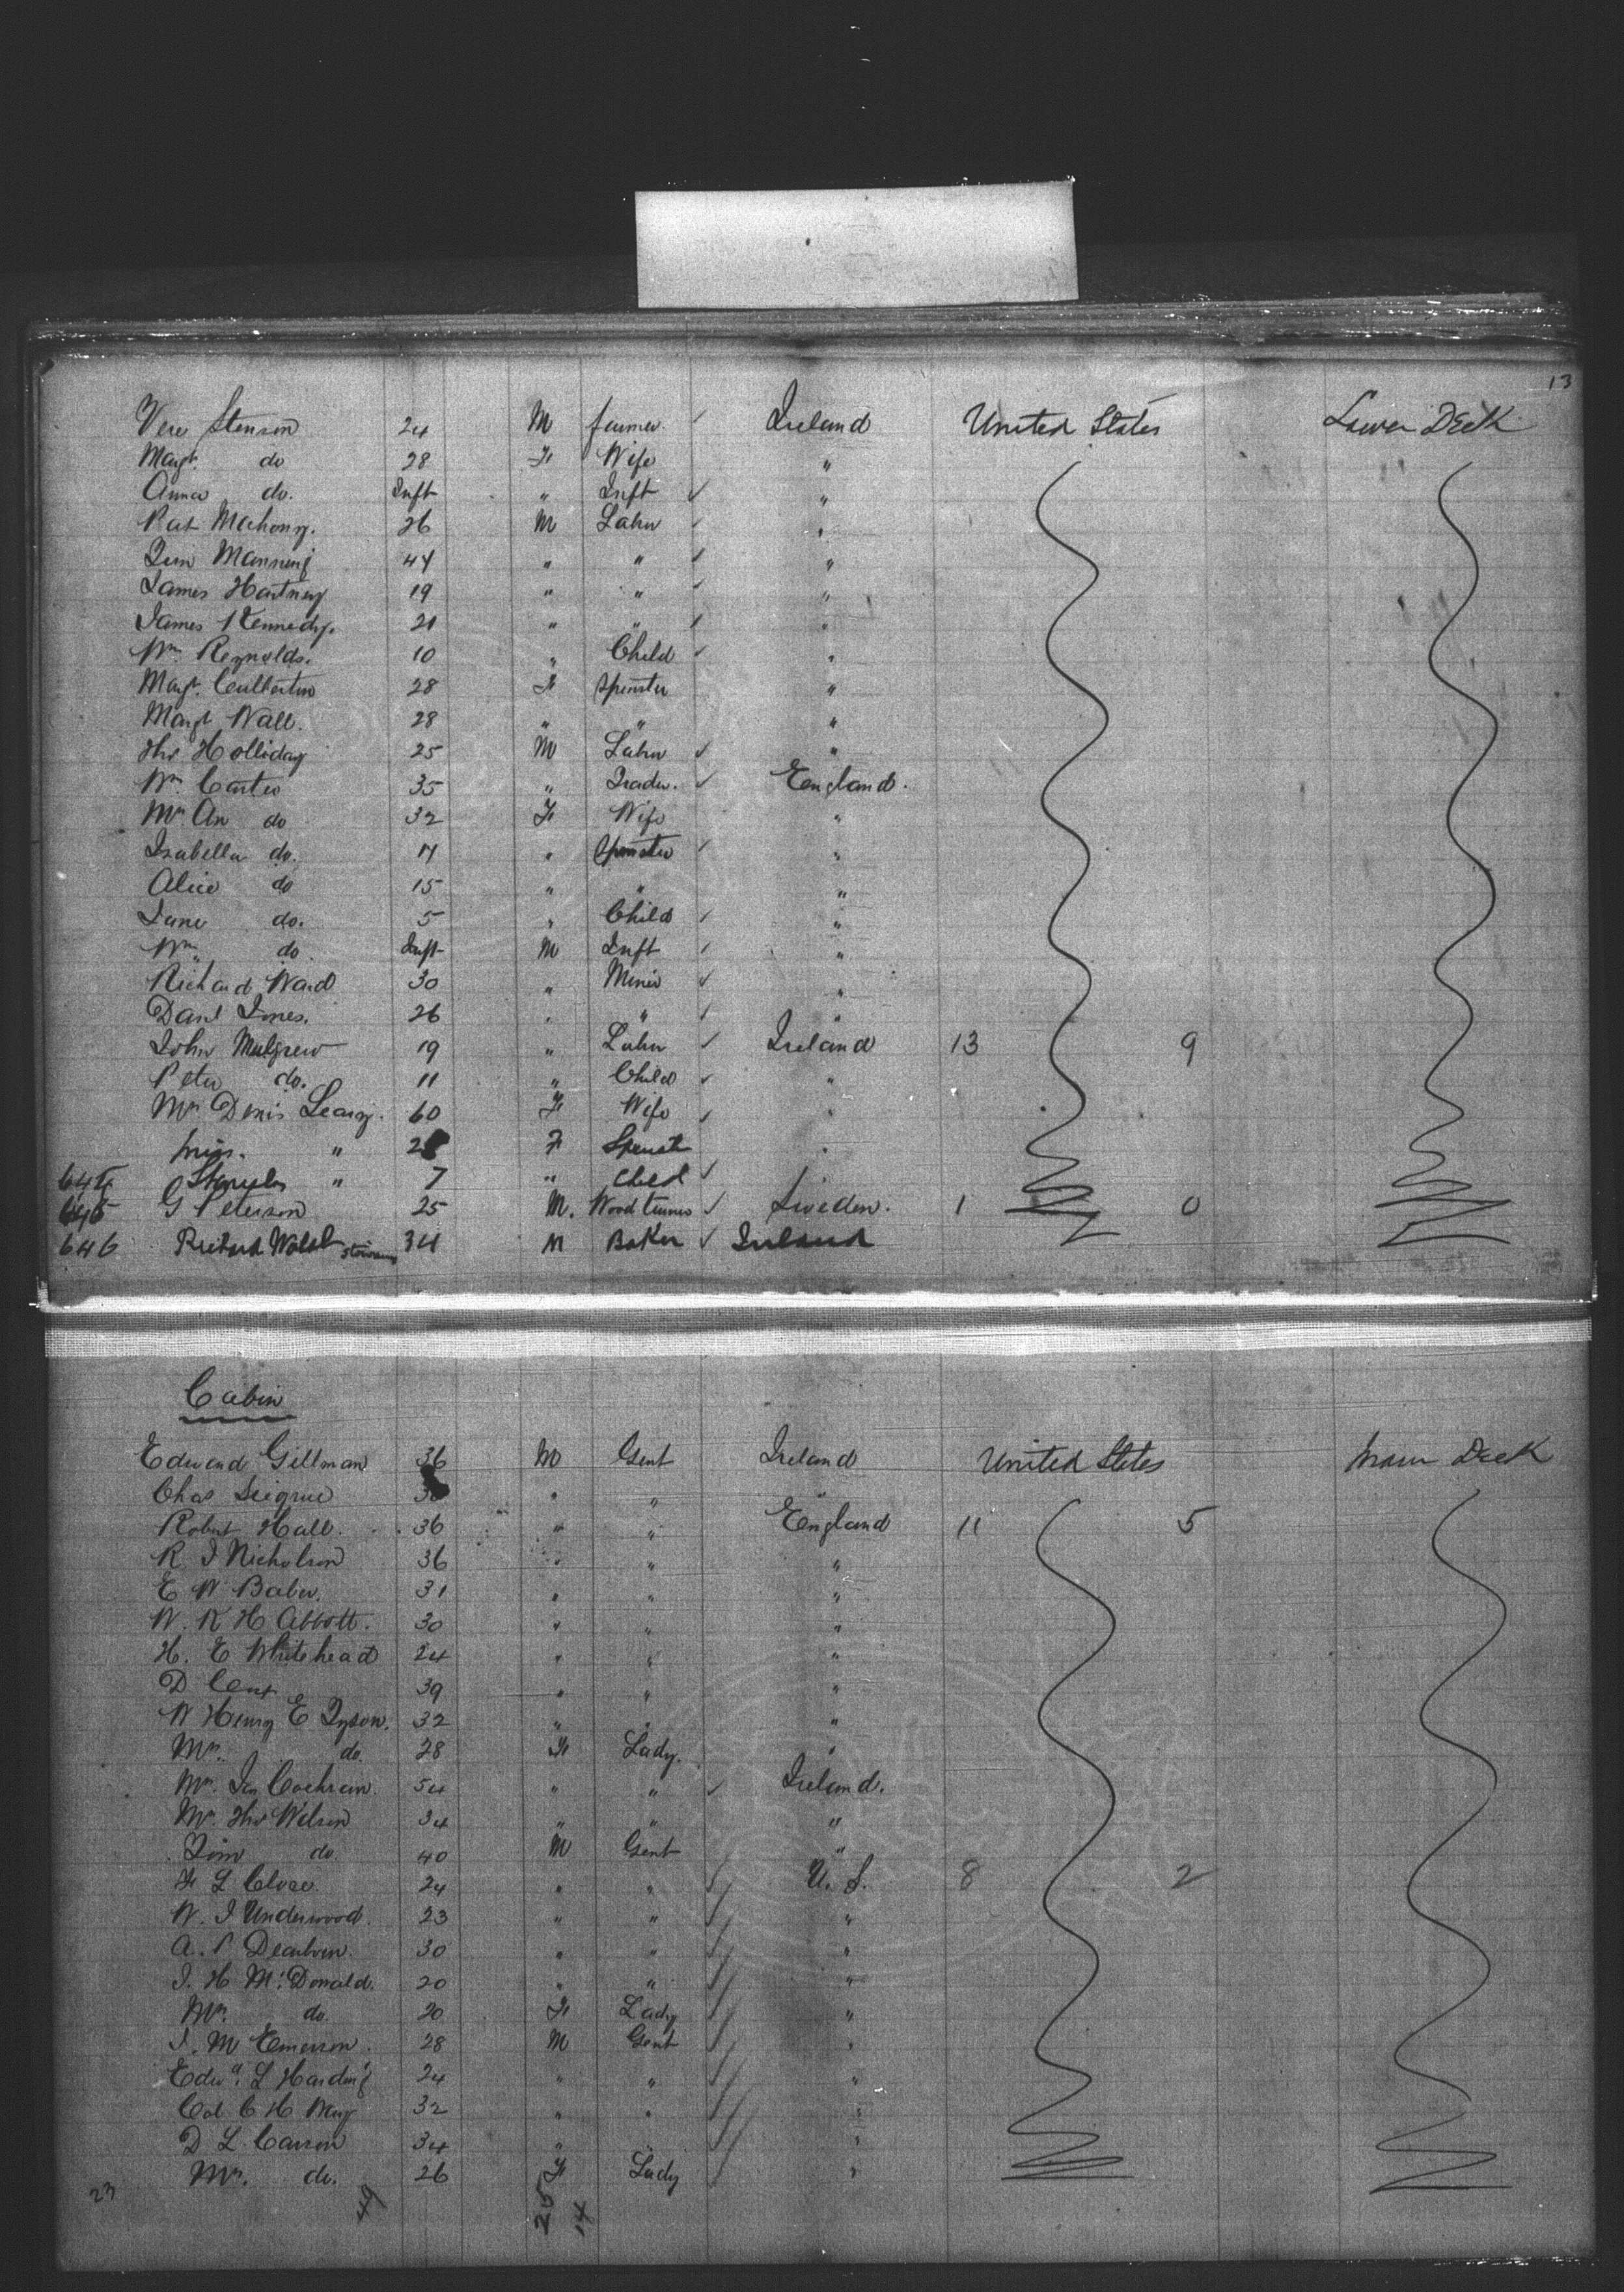 13
Vere Stenson 24 M farmer Ireland United States Lower Deck
Margt. do 28 F Wife "
Anna do. Inft " Inft "
Pat Mahony. 26 M Labr "
Tim Manning 44 " " "
James Hartney 19 " " "
James Kennedy. 21 " " "
Wm Reynolds. 10 " Child "
Margt. Culbertson 28 F Spinster "
Margt Wall. 28 " " "
Thos Holliday 25 M Labr "
Wm Carter 35 " Trader. England.
Mrs An do 32 F Wife "
Isabella do. " Spinster "
Alice do 15 " " "
Jane do. 5 " Child "
Wm do Inft M Inft "
Richard Ward 30 " Miner "
Danl Jones. 26 " " "
John Mulgrew 19 " Labr Ireland 13 9
Peter do. 11 " Child "
Mrs Denis Leary. 60 F Wife "
Miss. " F Spinst
" 7 " Child
645 G Peterson 25 M. Wood turner Sweden. 1 0
646 Richard Walsh 34 M Baker Ireland
Cabin
Edward Gillman 36 M Gent Ireland United States Main Deck
Chas " " "
Robert Hall. 36 " " England 11 5
R J Nicholson 36 " " "
E W Baber. 31 " " "
W. R H Abbott. 30 " " "
H. E Whitehead 24 " " "
D 39 " " "
W Henry E Tyson. 32 " " "
Mrs. do. 28 F Lady. "
Mrs. Jas Cochran. 54 " " Ireland.
Mrs. Thos Wilson 34 " " "
Tim do. 40 M Gent "
F L 24 " " U. S. 8 2
W. J Underwood. 23 " " "
A. P Dearborn. 30 " " "
J. H McDonald. 20 " " "
Mrs. do. 20 F Lady "
J. M Emerson. 28 M Gent "
Edwd. L Harding 24 " " "
Col C H May 32 " " "
D L Carson 34 " " "
Mrs. do. 26 F Lady "
23 49 25 14